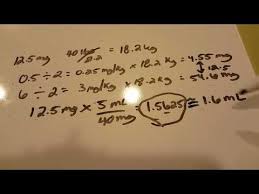 12.5mg 40 lbs/2.2 = 18.2 kg
0.5 ÷ 2 = 0.25mg/kg × 18.2kg = 4.55 mg
↕ 12.5
6 ÷ 2 = 3mg/kg × 18.2kg = 54.6 mg
12.5mg × 5 mL/40mg = 1.5625 ≈ 1.6mL